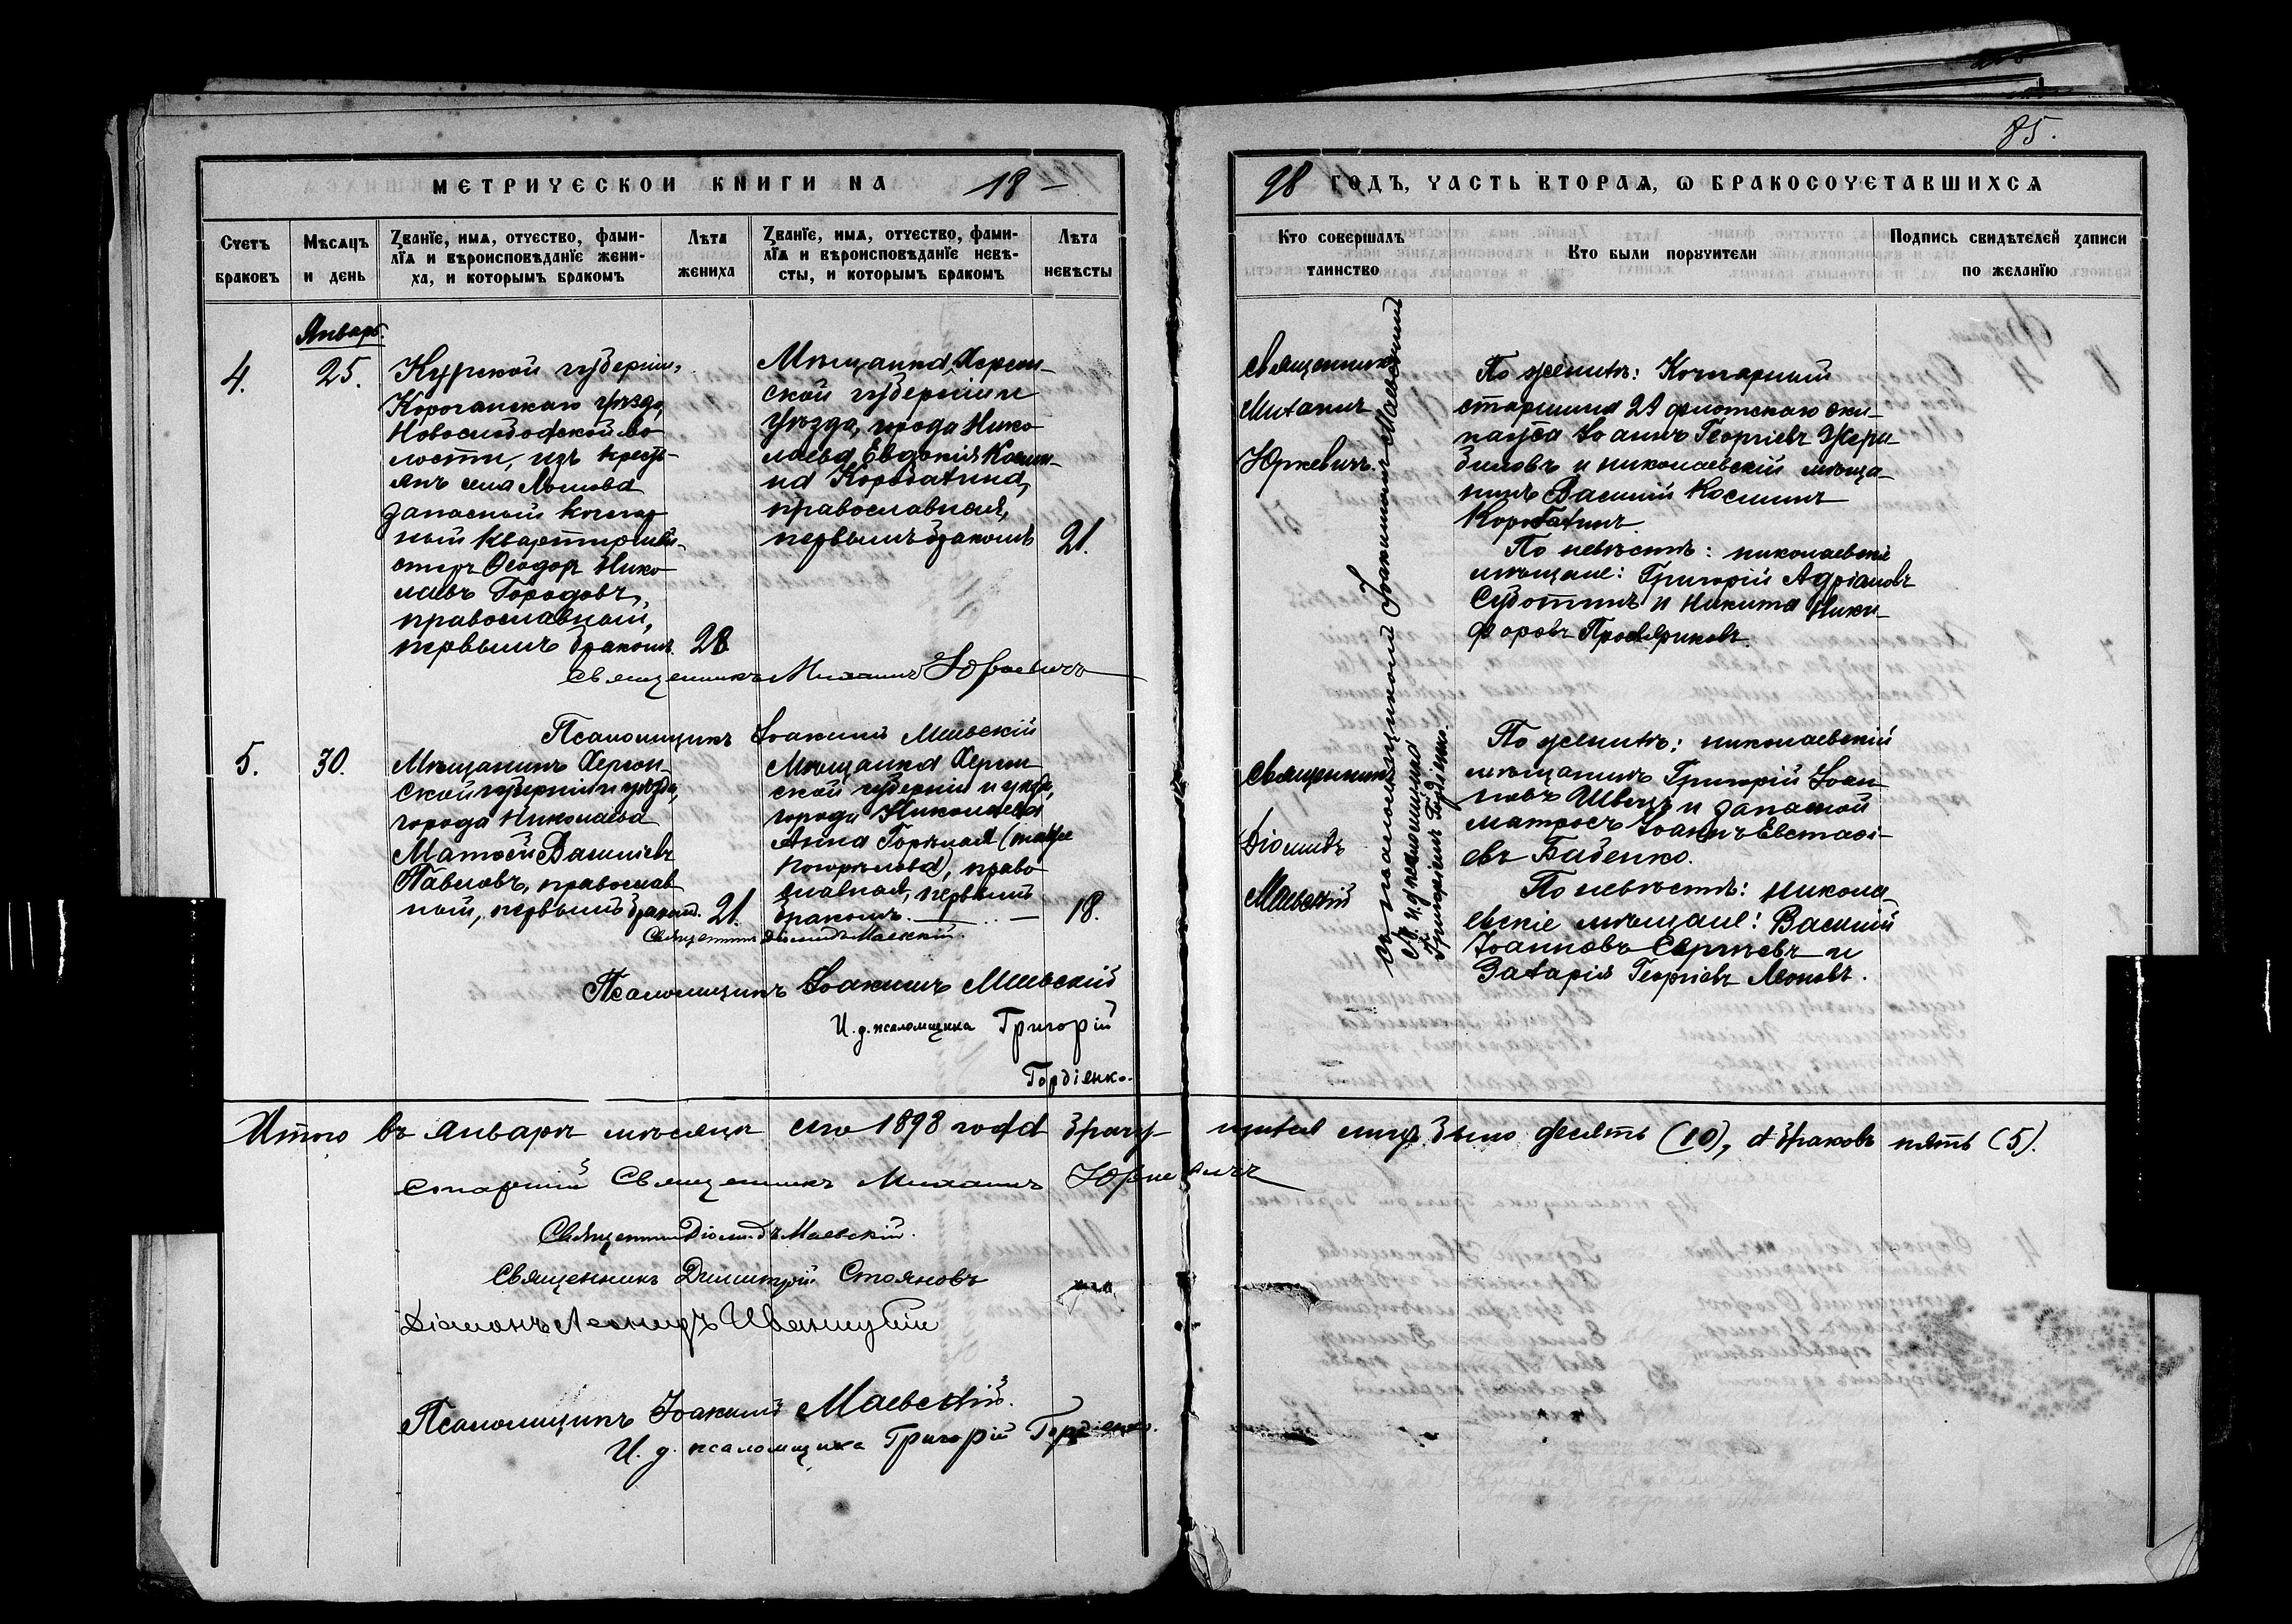 85.
МЕТРИЧЕСКОИ КНИГИ NА 18 — 98 ГОДЪ, ЧАСТЬ ВТОРАѦ, Ѡ БРАКОСОЧЕТАВШИХСѦ
Счетъ браковъ
Мѣсѧцъ и день
Званїе, имѧ, отчество, фами-
лїѧ и вѣроисповѣданїе жени-
ха, и которымъ бракомъ
Лѣта жениха
Званїе, имѧ, отчество, фами-
лїѧ и вѣроисповѣданїе невѣ-
сты, и которымъ бракомъ
Лѣта невѣсты
Кто совершалъ таинство
Кто были поручители
Подпись свидѣтелей записи по желанїю
Январь.
4.
25.
Курской губерніи,
Корочанскаго уѣзда,
Новослободской во-
лости, изъ кресть-
янъ села Ломова
запасный кочегар-
ный квартирмей-
стеръ Ѳеодоръ Нико-
лаевъ Городовъ,
православный,
первымъ бракомъ.
28
Мѣщанка Херсон-
ской губерніи и
уѣзда, города Нико-
лаева Евдокія Косми-
на Коробаткина,
православная,
первымъ бракомъ
21.
Священникъ
Михаилъ
Юркевичъ.
По женихѣ: Кочегарный
старшина 29 флотскаго эки-
пажа Іоаннъ Георгіевъ
и николаевскій мѣща-
нинъ Василій Косминъ
По невѣстѣ: николаевскіе
мѣщане: Григорій Адріановъ
Суботинъ и Никита Ники-
форовъ
Священникъ Михаилъ Юркевичъ
Псаломщикъ Іоакимъ Маевскій
5.
30.
Мѣщанинъ Херсон-
ской губерніи и уѣзда,
города Николаева
Матѳей Василіевъ
Павловъ, православ-
ный, первымъ бракомъ.
21.
Мѣщанка Херсон-
ской губерніи и уѣзда,
города Николаева
Анна (также
Погорѣлова), право-
славная, первымъ
бракомъ. —
18.
Священникъ
Діомидъ
Маевскій
съ псаломщикомъ Іоакимомъ Маевскимъ
и и. д. псаломщика
Григоріемъ Гордіенко.
По женихѣ: николаевскій
мѣщанинъ Григорій Іоан-
новъ Швецъ и запасной
матросъ Іоаннъ Евстаѳі-
евъ Бабенко.
По невѣстѣ: никола-
евскіе мѣщане: Василій
Іоанновъ Сергѣевъ и
Захарія Георгіевъ Леоновъ.
Священникъ Діомидъ Маевскій.
Псаломщикъ Іоакимъ Маевскій
И. д. псаломщика Григорій
Гордіенко.
Итого въ январѣ мѣсяцѣ сего 1898 года брачу- щихся лицъ было десять (10), а браковъ пять (5).
Старшій Священникъ Михаилъ Юркевичъ
Священникъ Діомидъ Маевскій.
Священникъ Димитрій Стояновъ
Діаконъ Леонидъ Иваницкій
Псаломщикъ Іоакимъ Маевскій.
И. д. псаломщика Григорій Гордіенко.